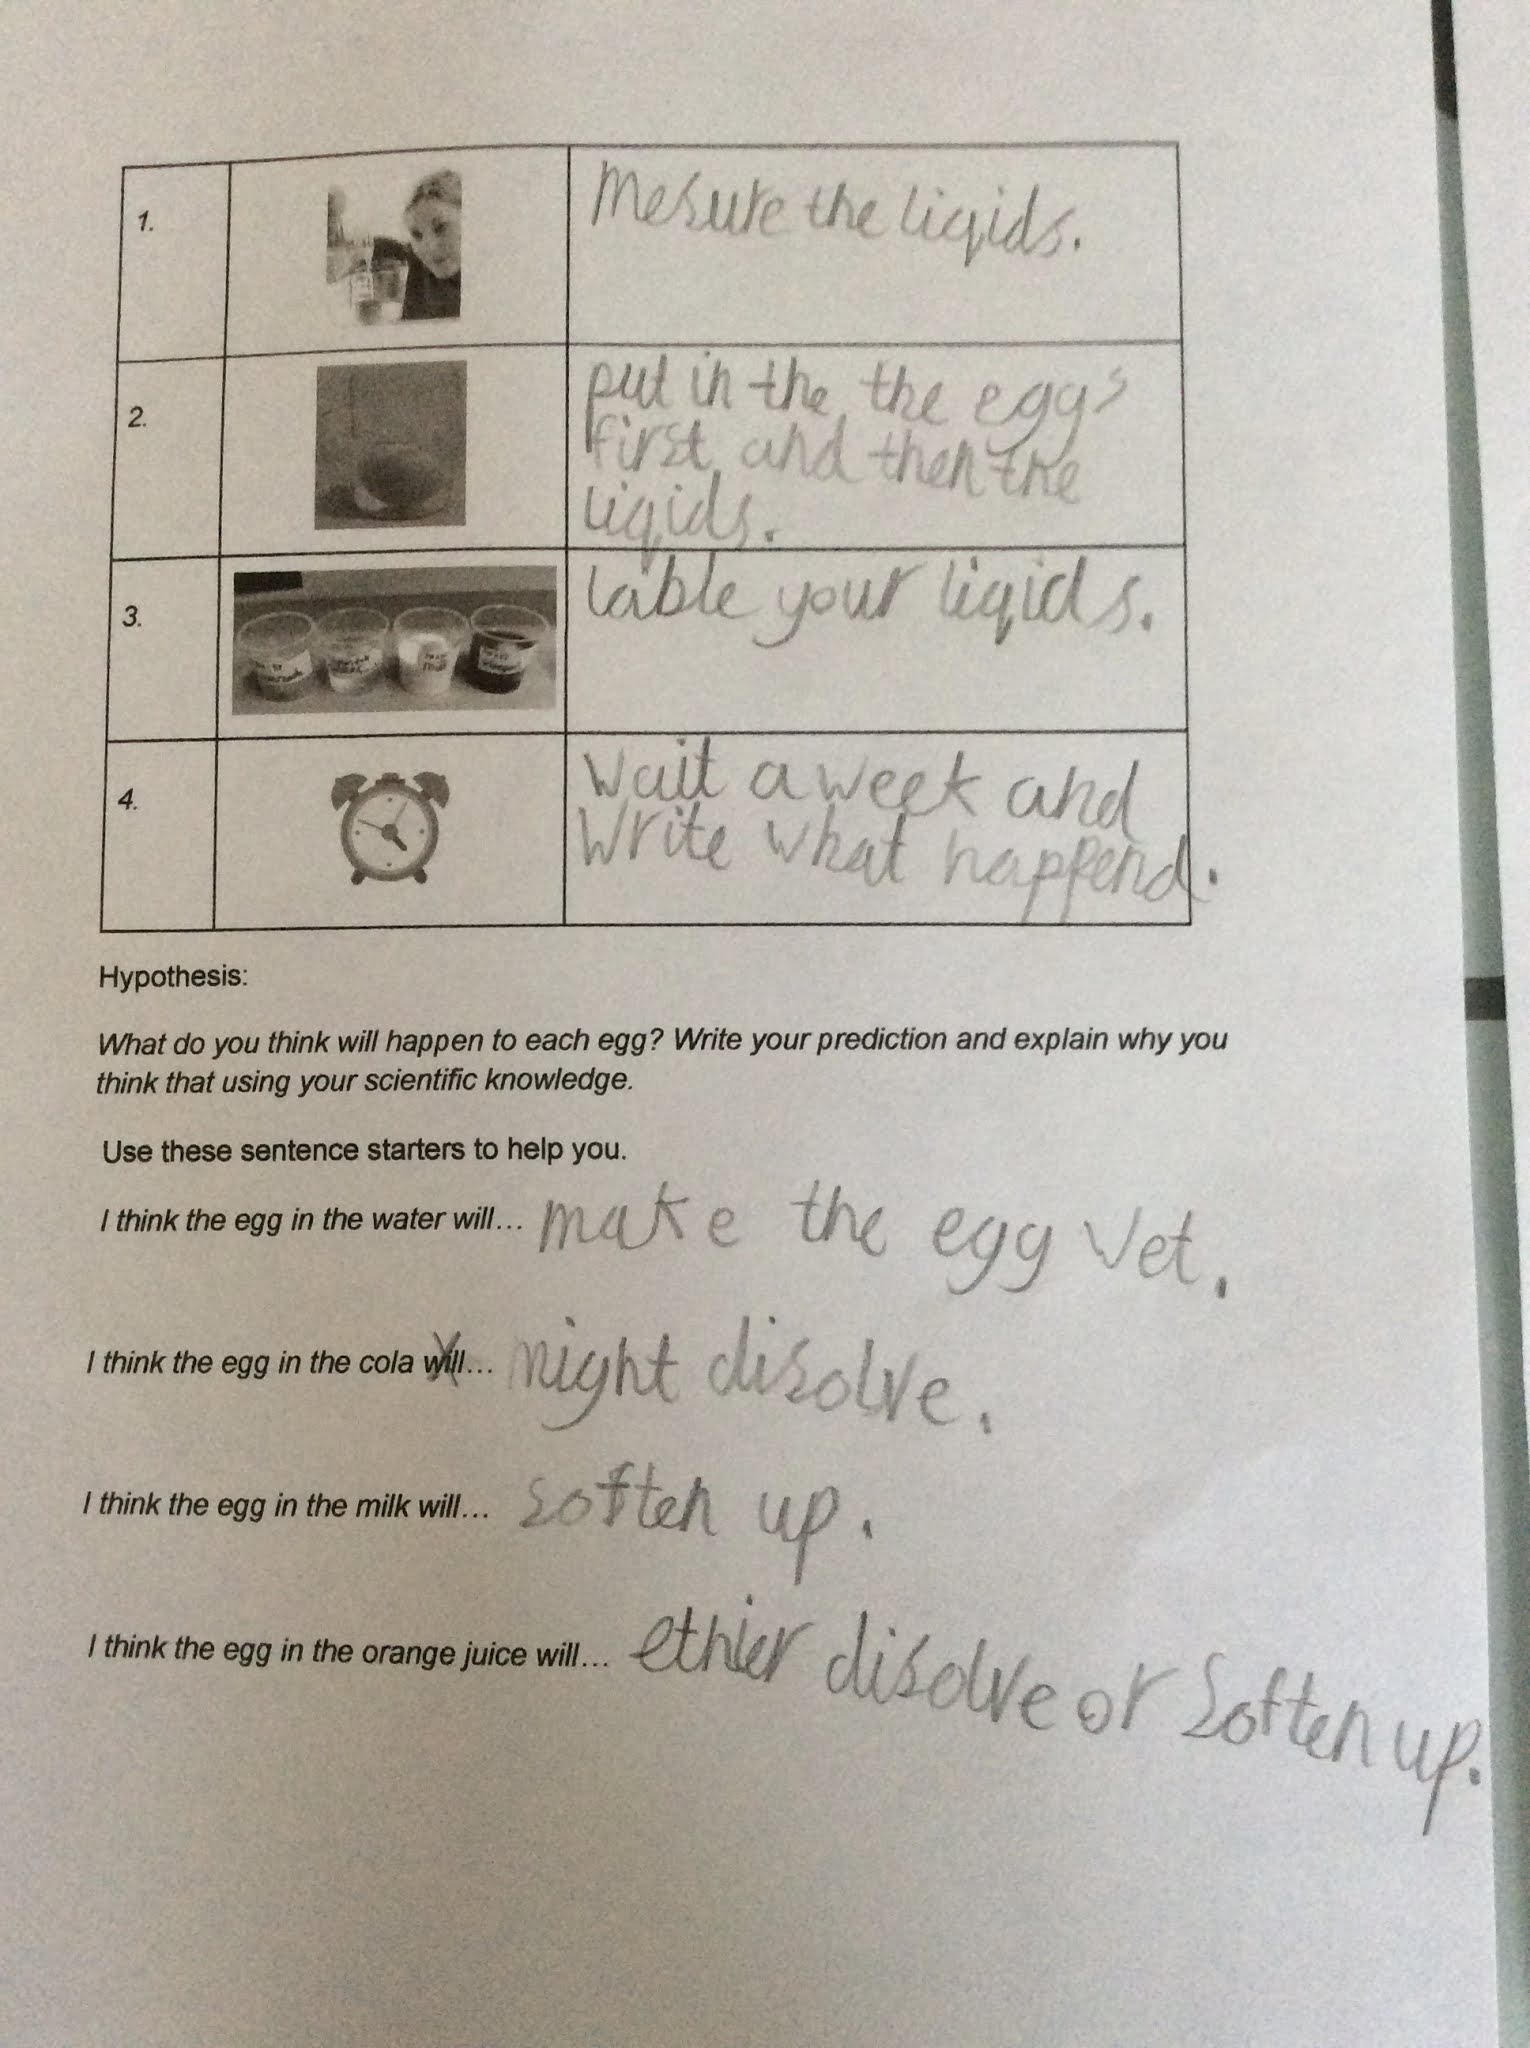 1.
Mesure the liqids.
2.
put in the the eggs
first and then the
liqids.
3.
lable your liqids.
4.
Wait a week and
Write what happend.
Hypothesis:
What do you think will happen to each egg? Write your prediction and explain why you
think that using your scientific knowledge.
Use these sentence starters to help you.
I think the egg in the water will... make the egg wet.
I think the egg in the cola will... might disolve.
I think the egg in the milk will... soften up.
I think the egg in the orange juice will... ethier disolve or soften up.